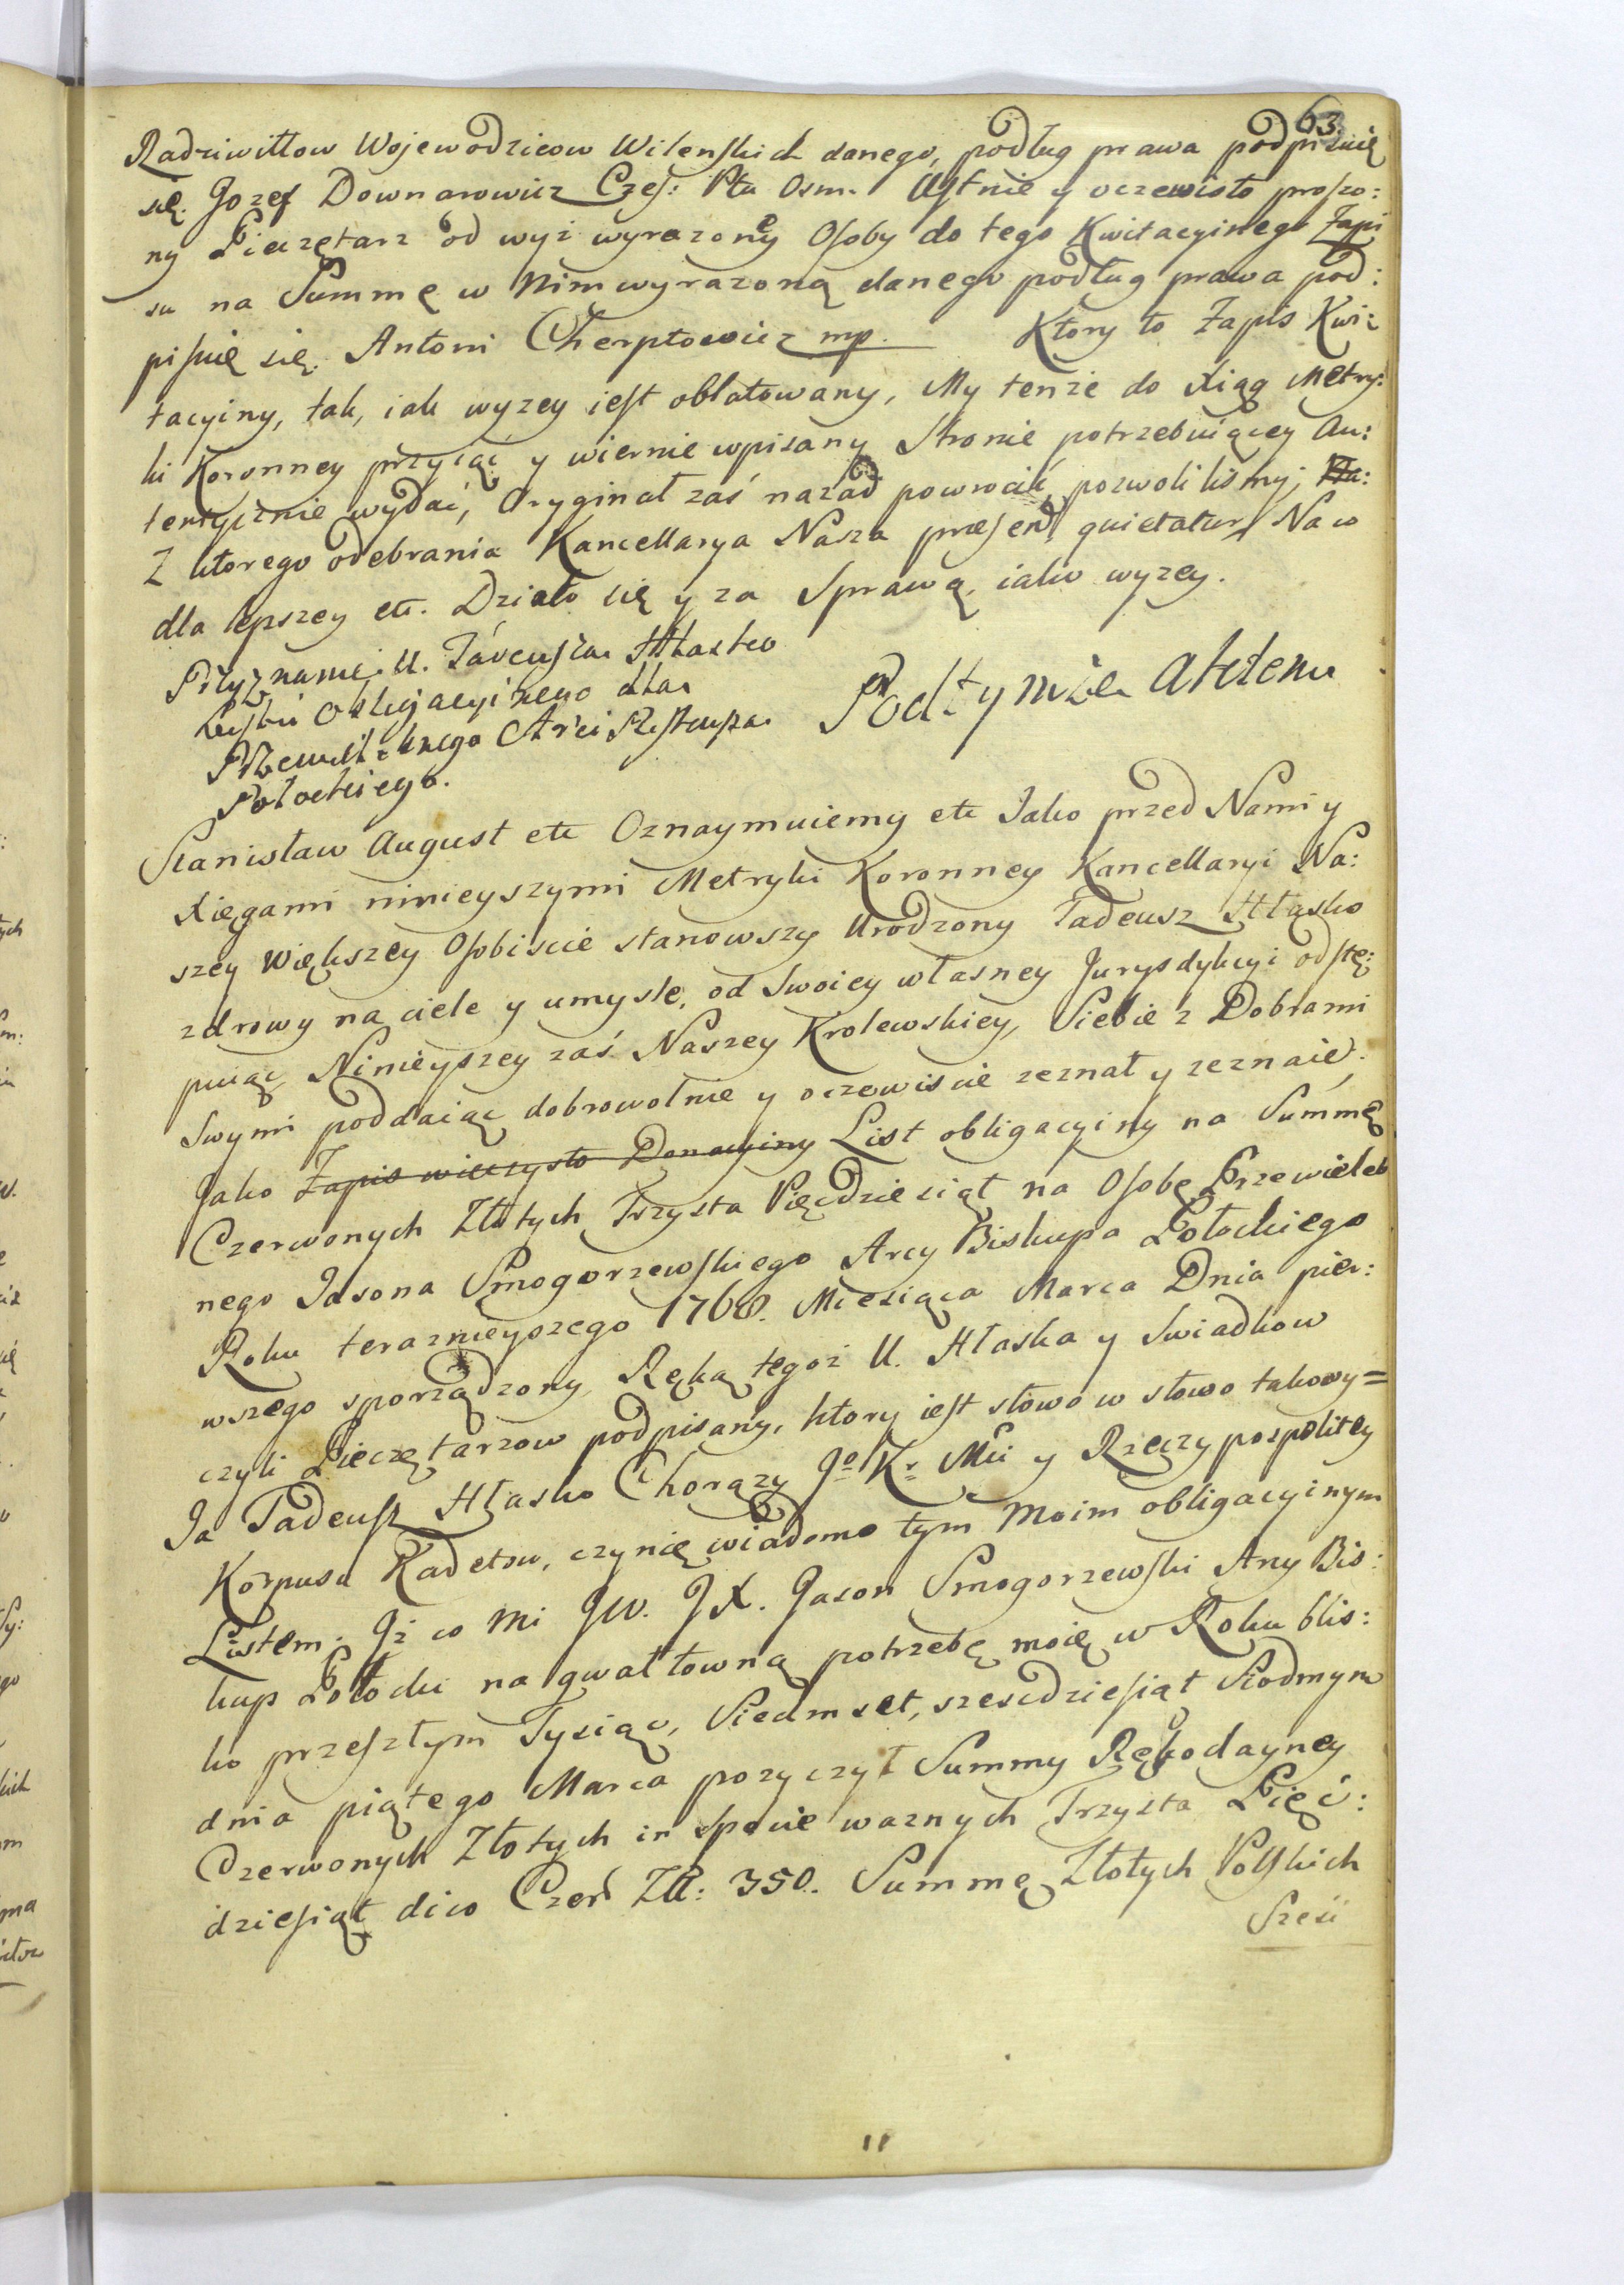 63.
Radziwiłłow Wojewodzicow Wilenskich danego, podług prawa podpisuię
się. Jozef Downarowicz Czes: Ptu Osm. Ustnie y oczewisto proszo:
ny Pieczętarz od wyż wyrazoney Osoby do tego Kwitacyinego Zapi
su na Summę w Nim wyrazoną danego podług prawa pod:
pisuię się. Antoni Chreptowicz mp. Ktory to Zapis Kwi:
tacyiny, tak, iak wyzey iest oblatowany, My tenze do Xiąg Metry:
ki Koronney przyiąć y wiernie wpisany Stronie potrzebuiącey Au:
tentycznie wydać, Oryginał zaś nazad powrocić pozwoliliśmy;
Z ktorego odebrania Kancellarya Nasza præsent. quietatur. Na co
dla lepszey etc. Działo się y za Sprawą, iako wyzey.
Przyznanie U. Tadeusza Hłasko
Listu Obligacyinego dla
Przewielebnego Arci Biskupa
Połockiego.
Pod tymże Aktem
Stanisław August etc Oznaymuiemy etc Jako przed Nami y
Xięgami ninieyszymi Metryki Koronney Kancellaryi Na:
szey Większey Osobiscie stanowszy Urodzony Tadeusz Hłasko
zdrowy na ciele y umysle, od Swoiey własney Jurysdykcyi odstę:
puiąc, Ninieyszey zaś Naszey Krolewskiey, Siebie z Dobrami
Swymi poddaiąc dobrowolnie y oczewiscie zeznał y zeznaie;
Jako Zapis wieczysto Donacyiny List obligacyiny na Summę
Czerwonych Złotych Trzysta Pięcdziesiąt na Osobę Przewieleb
nego Jasona Smogorzewskiego Arcy Biskupa Połockiego
Roku teraznieyszego 1768. Miesiąca Marca Dnia pier:
wszego sporządzony, Ręką tegoż U. Hłaska y Swiadkow
czyli Pieczętarzow podpisany, ktory iest słowo w słowo takowy=
Ja Tadeusz Hłasko Chorązy Jo Kr Mci y Rzeczypospolitey
Korpusu Kadetow, czynię wiadomo tym Moim obligacyinym
Listem. Jż co mi JW. JX. Jason Smogorzewski Arcy Bis:
kup Połocki na gwałtowną potrzebę moię w Roku blis:
ko przeszłym Tysiąc, Siedmset, szescdziesiąt Siodmym
dnia piątego Marca pozyczył Summy Rękodayney
Czerwonych Złotych in specie waznych Trzysta Pięć:
dziesiąt dico Czer Zł: 350. Summę Złotych Polskich
Sześć
11